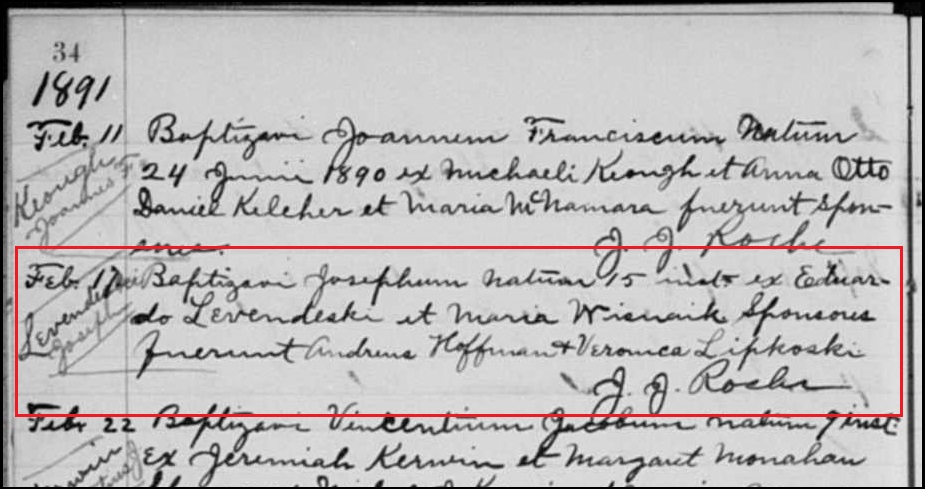 34
1891
Feb. 11 Baptizavi Joannem Franciscum Natum
24 Junii 1890 ex Michaeli Keough et Anna Otto
Daniel Kelcher et Maria McNamara fuerunt Spon-
sores.
J. J. Roche
Keough
Joannes F.
Feb. 17 Baptizavi Josephum natum 15 inst. ex Eduar-
do Levendeski et Maria Wisnaik Sponsous
fuerunt Andreus Hoffman & Veronica Lipkoski
J. J. Roche
Levendeski
Joseph
Feb. 22 Baptizavi Vincentium Jacobum natum 7 inst.
Ex Jeremiah Kerwin et Margaret Monahan
Kerwin